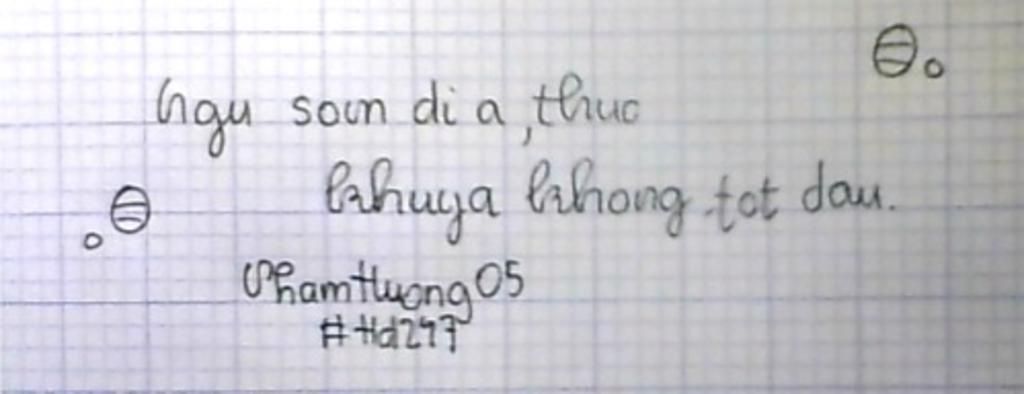 Ngu som di a, thuc
khuya khong tot dau.
PhamHuong05
#Hd247